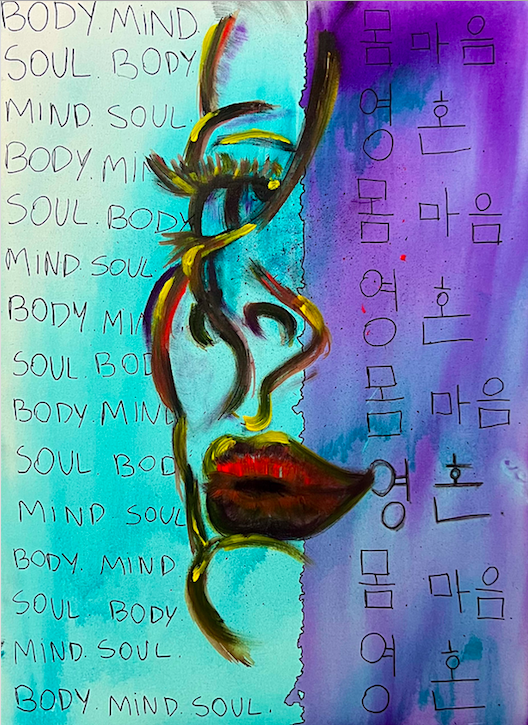 BODY. MIND.
SOUL. BODY.
MIND. SOUL.
BODY. MIN
SOUL. BODY
MIND. SOUL
BODY. MIN
SOUL BOD
BODY. MIND
SOUL BOD
MIND SOUL
BODY. MIND
SOUL BODY
MIND. SOUL.
BODY. MIND. SOUL.
몸 마음
영혼.
몸 마음
영혼.
몸 마음
영혼.
몸 마음
영혼.